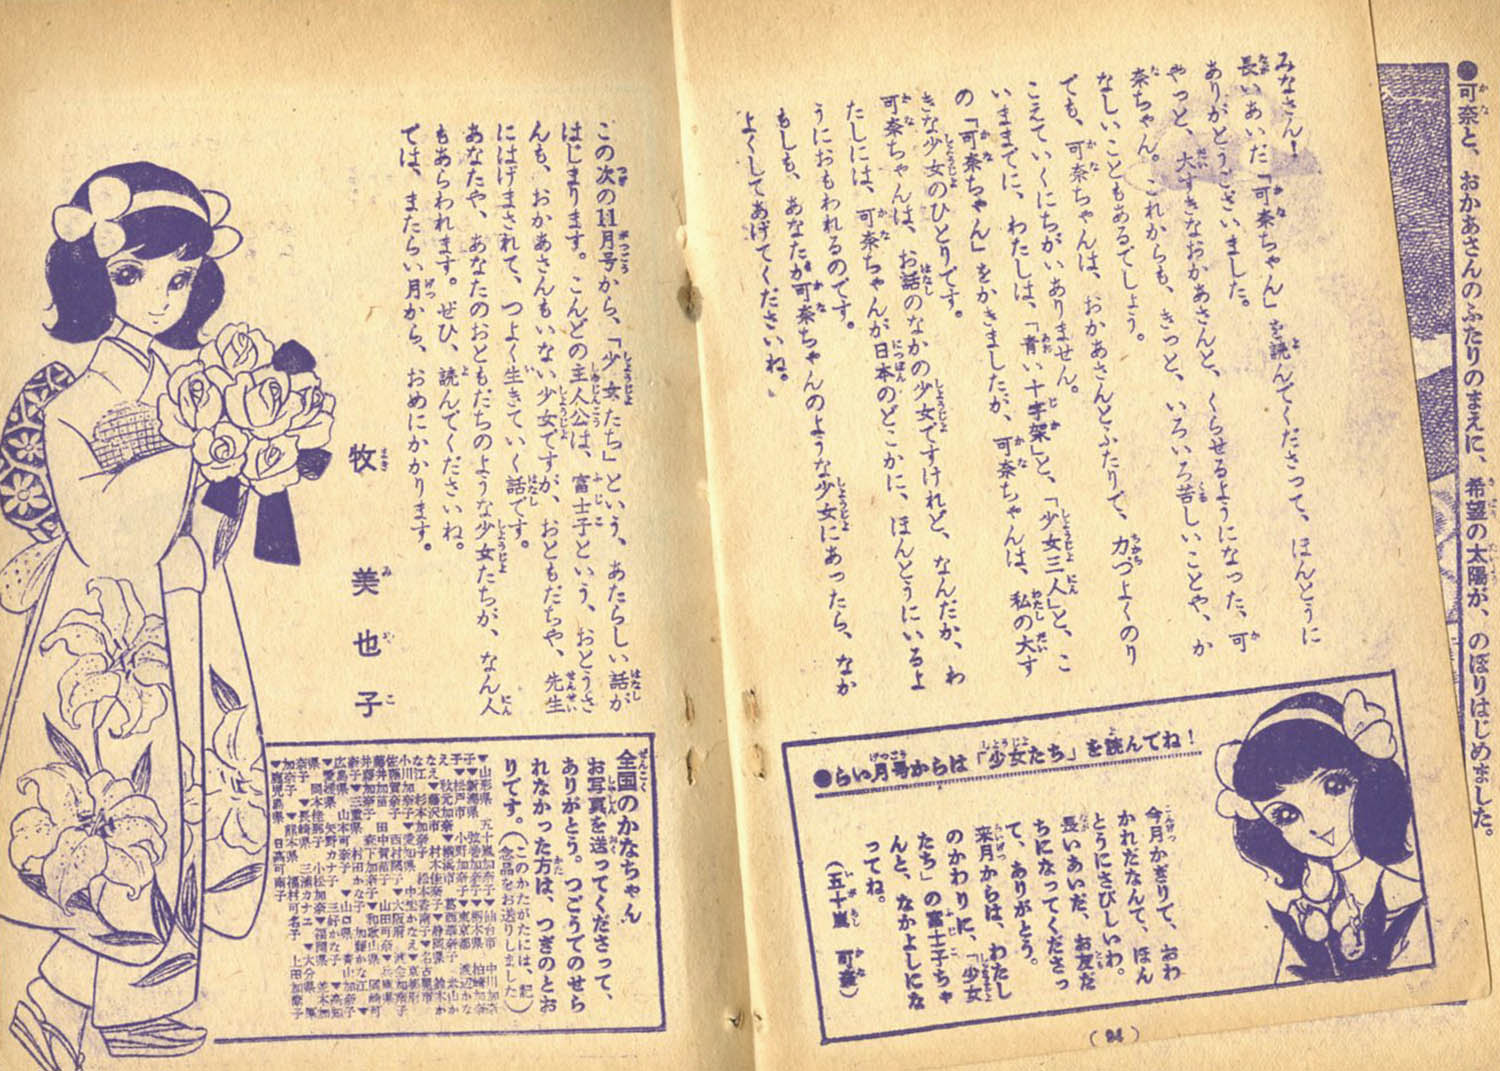 ●可奈と、おかあさんのふたりのまえに、希望の太陽が、のぼりはじめました。
みなさん！
長いあいだ「可奈ちゃん」を読んでくださって、ほんとうに
ありがとうございました。
やっと、大すきなおかあさんと、くらせるようになった、可
奈ちゃん。これからも、きっと、いろいろ苦しいことや、か
なしいこともあるでしょう。
でも、可奈ちゃんは、おかあさんとふたりで、力づよくのり
こえていくにちがいありません。
いままでに、わたしは、「青い十字架」と、「少女三人」と、こ
の「可奈ちゃん」をかきましたが、可奈ちゃんは、私の大す
きな少女のひとりです。
可奈ちゃんは、お話のなかの少女ですけれど、なんだか、わ
たしには、可奈ちゃんが日本のどこかに、ほんとうにいるよ
うにおもわれるのです。
もしも、あなたが可奈ちゃんのような少女にあったら、なか
よくしてあげてくださいね。
●らい月号からは「少女たち」を読んでね！
今月かぎりで、おわ
かれだなんて、ほん
とうにさびしいわ。
長いあいだ、お友だ
ちになってくださっ
て、ありがとう。
来月からは、わたし
のかわりに、「少女
たち」の富士子ちゃ
んと、なかよしにな
ってね。
（五十嵐 可奈）
（94）
この次の11月号から、「少女たち」という、あたらしい話が
はじまります。こんどの主人公は、富士子という、おとうさ
んも、おかあさんもいない少女ですが、おともだちや、先生
にはげまされて、つよく生きていく話です。
あなたや、あなたのおともだちのような少女たちが、なん人
もあらわれます。ぜひ、読んでくださいね。
では、またらい月から、おめにかかります。
牧 美也子
全国のかなちゃん
お写真を送ってくださって、
ありがとう。つごうでのせら
れなかった方は、つぎのとお
りです。（このかたがたには、記
念品をお送りしました）
▼山形県 五十嵐加奈子▼仙台市 中川加奈
子▼新潟県